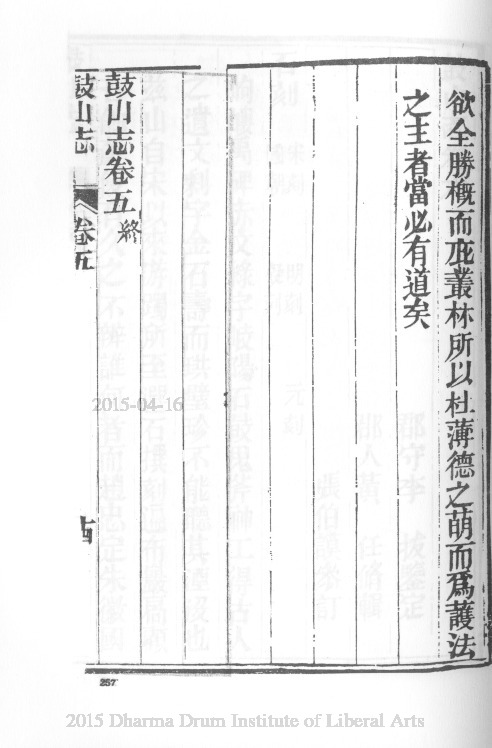 欲全勝概而庇叢林所以杜薄德之萌而爲護法
之主者當必有道矣
鼓山志卷五終
鼓山志
卷五
十四
257
2015-04-16
2015 Dharma Drum Institute of Liberal Arts